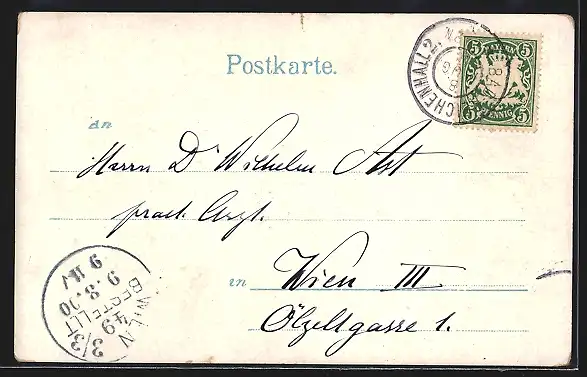 Postkarte.
CHENHALL 2.
5 BAYERN 5
5 PFENNIG 5
An
Herrn Dr Wilhelm Ast
pract. Arzt.
in Wien III
Ölzeltgasse 1.
WIEN
3/3
49
BESTELLT
9. 8. 00
9